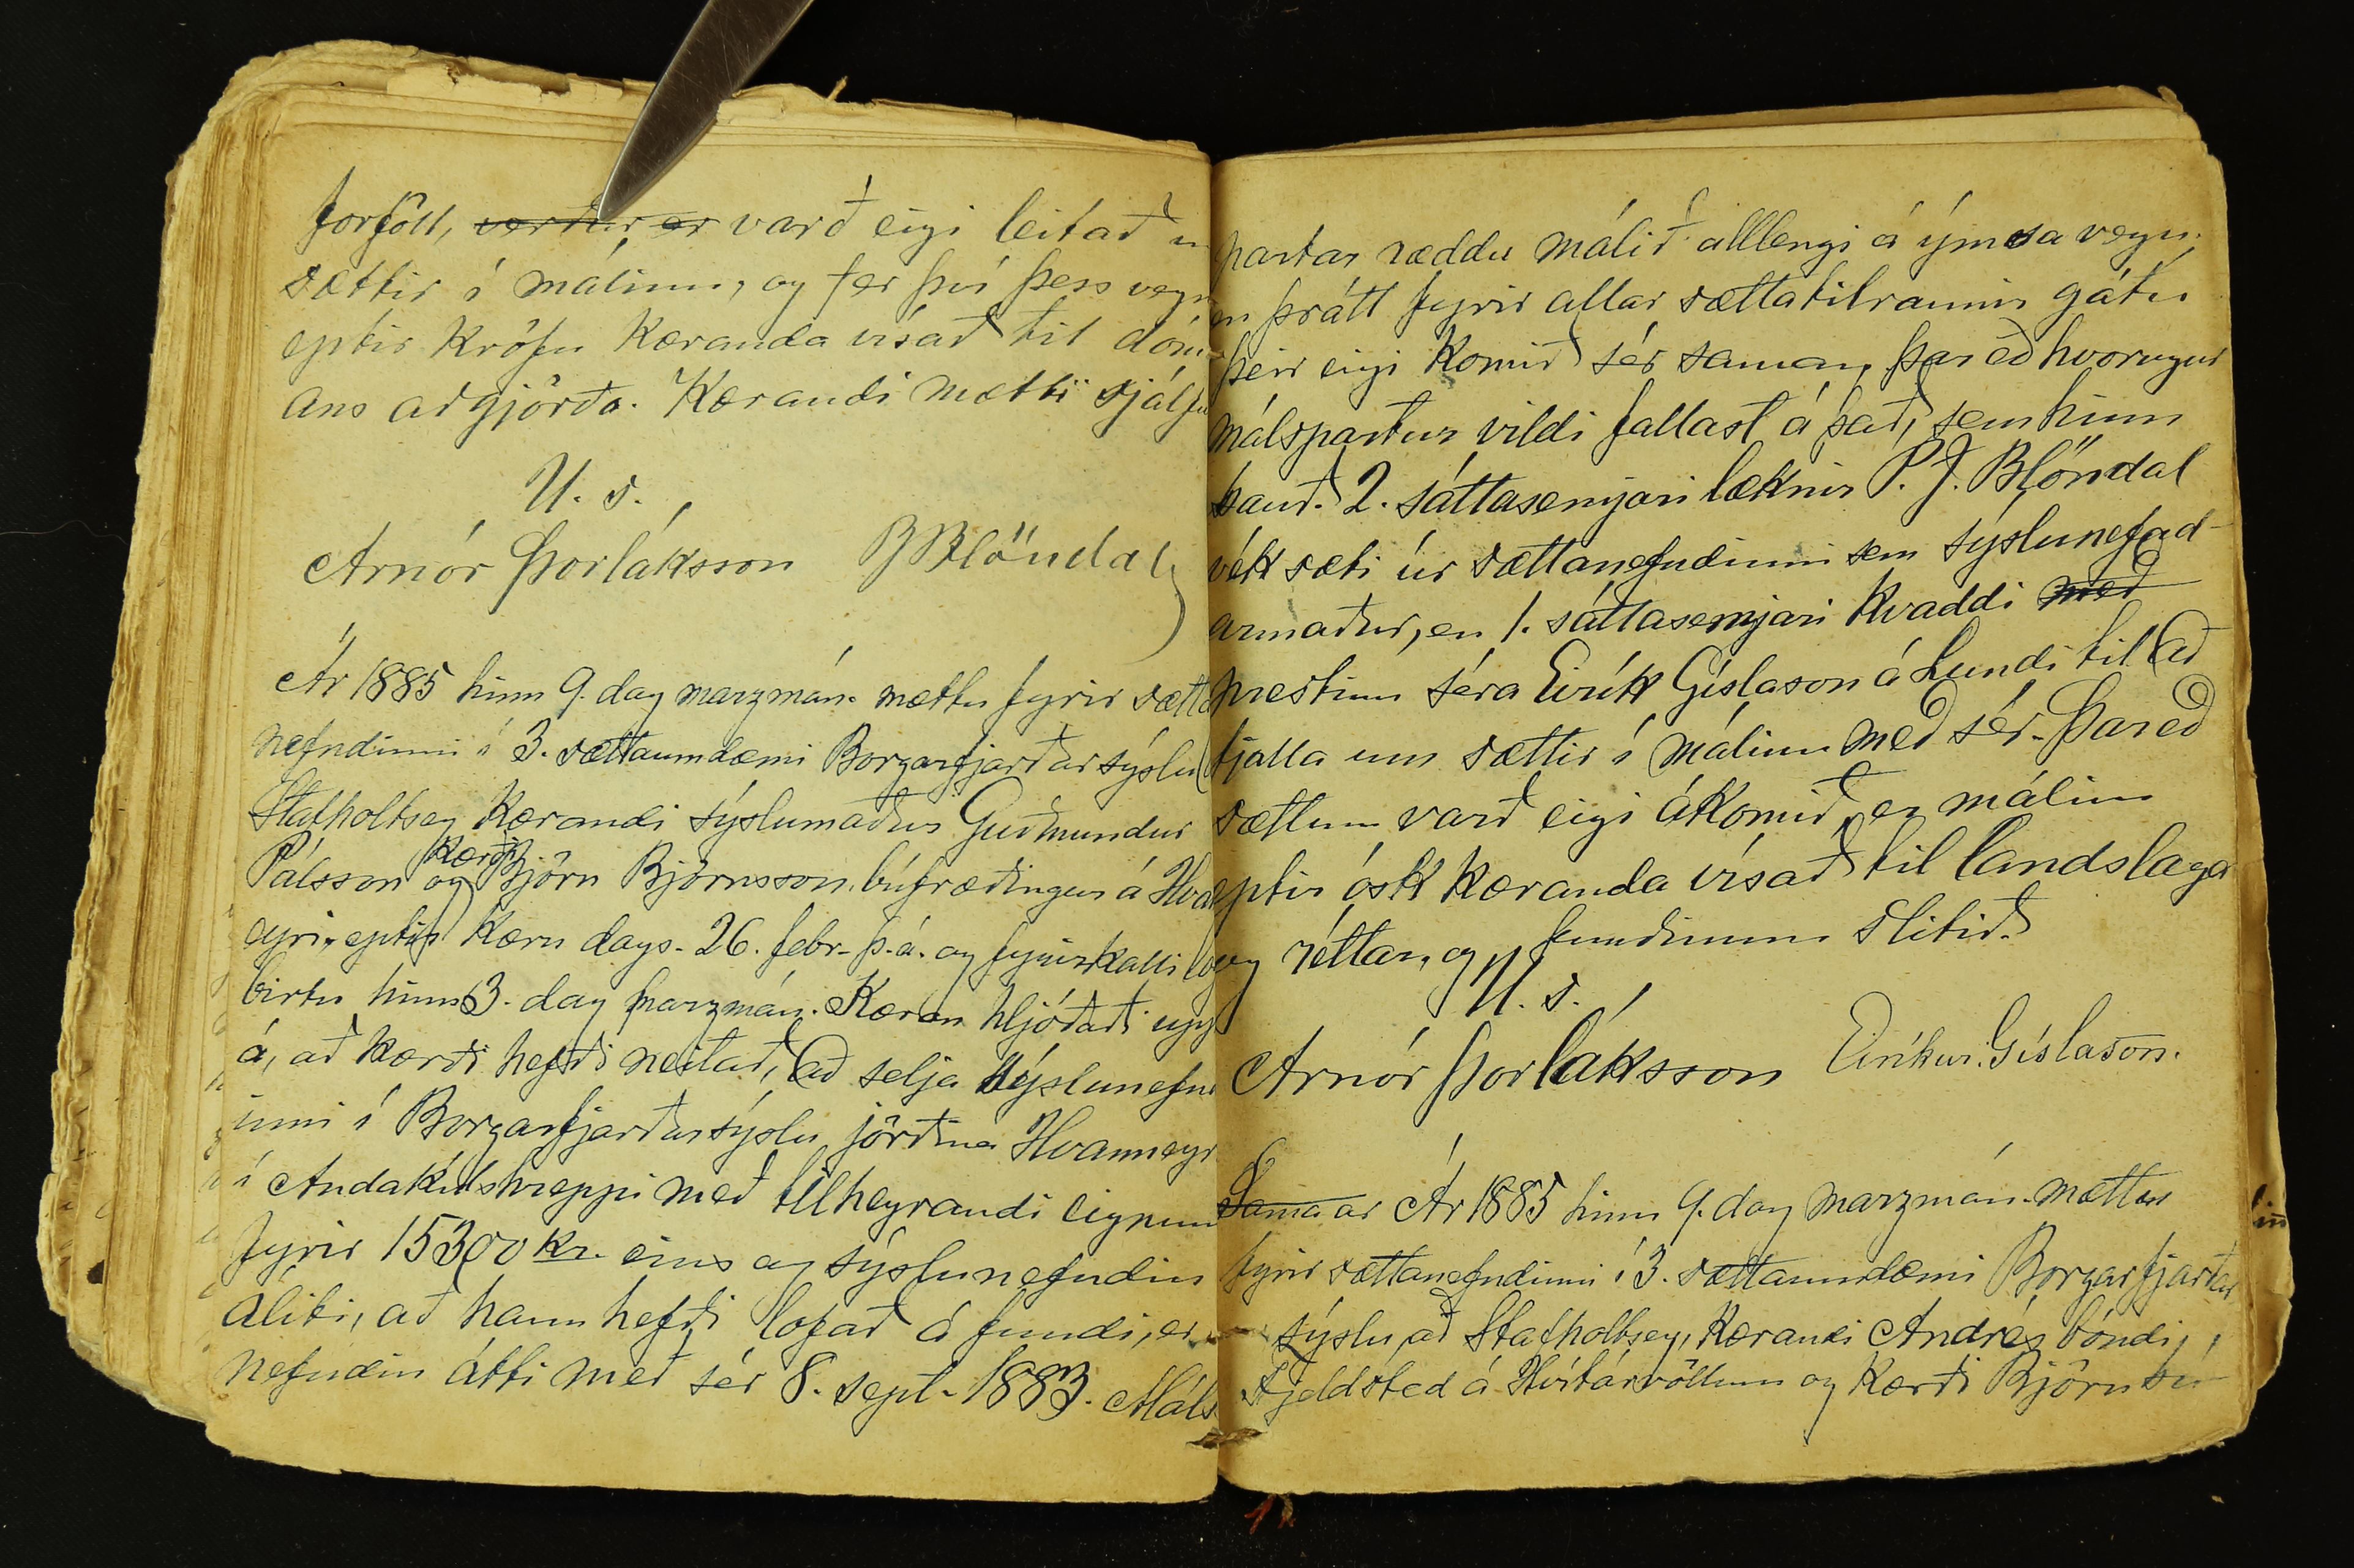 forföll, verður, er varð eigi leitað u
sættir í málinu, og fer því þess vegn
eptir kröfu kæranda vísað til dóm-
ans aðgjörða. Kærandi mætti sjálfu
U. s.
Arnór Þorláksson BBlöndal
Ár 1885 hinn 9. dag marzmán. mættu fyrir sætta
nefndinni í 3. sáttaumdæmi Borgarfjarðarsýslu
Stafholtsey kærandi sýslumaður Guðmundur
kærði
Pálsson og Björn Björnsson, búfræðingur á Hvan
eyri, eptir kæru dags. 26. febr. þ. á. og fyrirkalli
birtu hinn 3. dag marzmán. Kæran hljóðaði upp
á, að kærði hefði neitað, að selja sýslunefnd
inni í Borgarfjarðarsýslu jörðina Hvanneyr
í Andakílshreppi með tilheyrandi eignum
fyrir 15300 kr. eins og sýslunefndin
áliti, að hann hefði lofað á fundi, er
nefndin átti með sér 8. sept. 1883. Máls
partar ræddu málið alllengi á ýmsa vegu.
en þrátt fyrir allar sættatilraunir gátu
þeir eigi komið sér saman, þar eð hvorugur
málspartur vildi fallast á það, sem hinn
bauð. 2. sáttasemjari læknir P. J. Blöndal
vék sæti úr sættanefndinni sem sýslunefnd-
armaður, en 1. sáttasemjari kvaddi með
prestinn séra Eirík Gíslason á Lundi til að
fjalla um sættir í málinu með sér. Þareð
sættum varð eigi ákomið, er málinu
eptir ósk kæranda vísað til landslaga
og réttar, og fundinum slitið.
U. s.
Arnór Þorláksson Eiríkur Gíslason.
Sama ár Ár 1885 hinn 9. dag marzmán. mættu
fyrir sættanefndinni í 3. sáttaumdæmi Borgarfjarðar
sýslu, að Stafholtsey, kærandi Andrés bóndi
Fjeldsted á Hvítárvöllum og kærði Björn bú